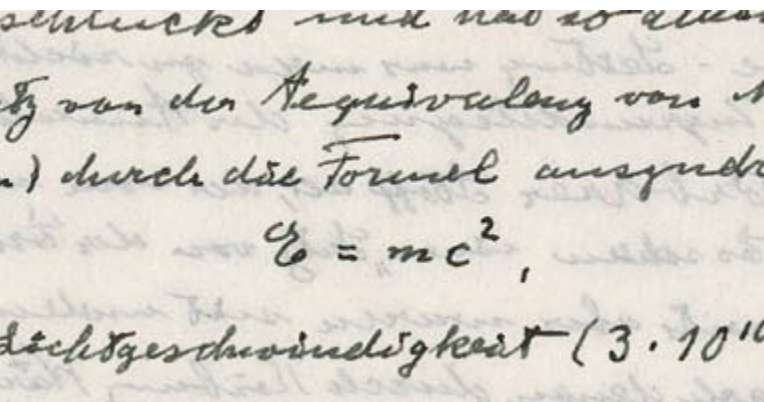 schluckt und hat so
tz von der Aequivalenz von M
n) durch die Formel auszudr
E = mc²,
Lichtgeschwindigkeit (3 · 10¹⁰